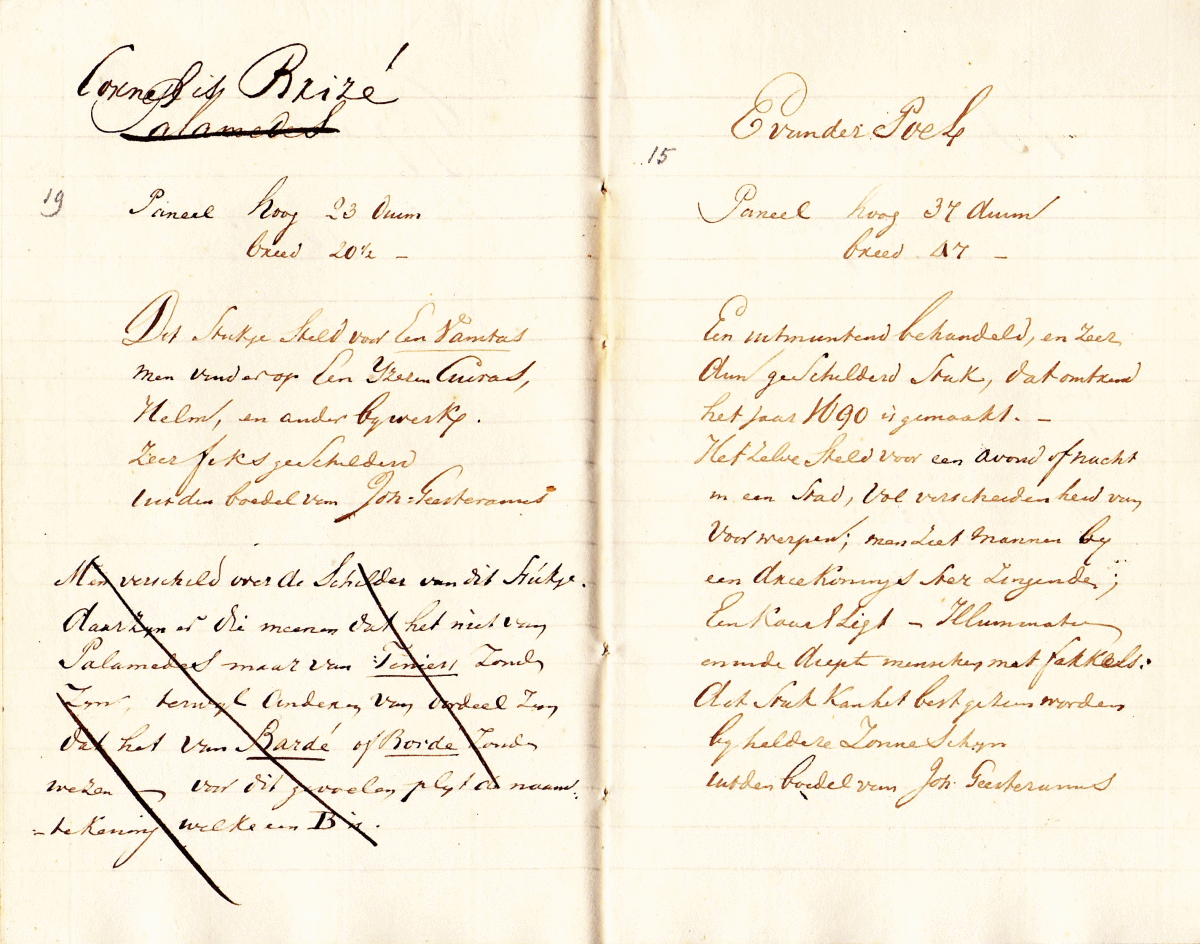 Cornelis Brizé
Palamedes
19
Paneel hoog 23 duim
breed 20½ –
Dit Stukje Steld voor Een Vanitas
men vind er op Een Yzeren Curas,
Helm, en ander bywerk.
Zeer fiks geschilderd
uit den boedel van Joh: Geesteranus
Men verschild over de Schilder van dit Stukje.
daar zyn er die meenen dat het niet van
Palamedes maar van Teniers Zoude
Zyn, terwyl anderen van oordeel Zyn
dat het van Bardé of Borde Zoude
wezen — voor dit gevoelen plyt de naam:
=tekening welke een B is.
E vander Poel
15
Paneel hoog 37 duim
breed 47 –
Een uitmuntend behandeld, en zeer
dun geschilderd Stuk, dat omtrend
het jaar 1690 is gemaakt. –
Het Zelve Steld voor een avond of nacht
in een Stad, vol verscheidenheid van
voorwerpen; men ziet mannen by
een drie Konings Ster Zingende;
Een Kaars Ligt –
en in de diepte menschen met fakkels:
dit Stuk Kan het best gezien worden
by heldere Zonne Schyn
uit den boedel van Joh: Geesteranus